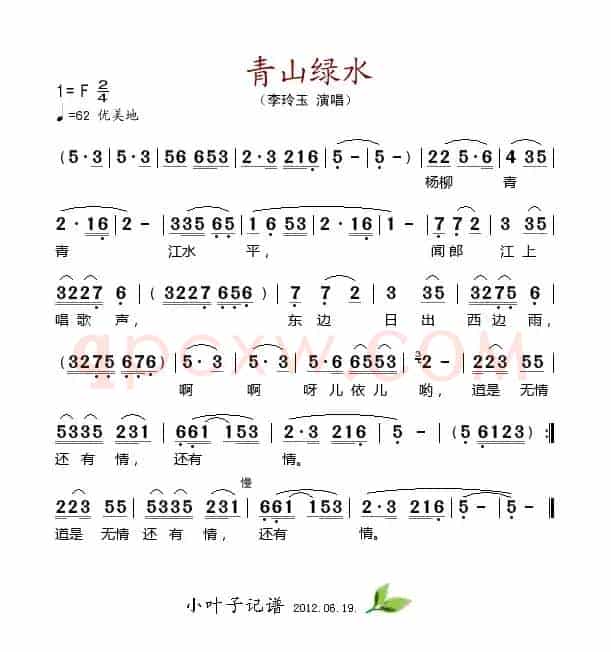 青山绿水
1= F 2/4
（李玲玉 演唱）
♩=62 优美地
（5·3 | 5·3 | 56 653 | 2·3 216 | 5 - | 5 - ）| 22 5·6 | 4 35 |
杨柳 青
2·16 | 2 - | 335 65 | 1 6 53 | 2·3 216 | 1 - | 7 7 2 | 3 35 |
青 江水 平， 闻郎 江上
3227 6 |（3227 656）| 7 7 2 | 3 35 | 3227 6 |
唱歌 声， 东边 日 出 西边 雨，
（3275 676）| 5·3 | 5·3 | 5·6 6553 | 3 2 - | 223 55 |
啊 啊 呀儿依儿 哟， 道是 无情
5335 231 | 661 153 | 2·3 216 | 5 - |（5 6123）:‖
还有 情， 还有 情。
慢
223 55 | 5335 231 | 661 153 | 2·3 216 | 5 - | 5 - ‖
道是 无情 还有 情， 还有 情。
小叶子记谱 2012.06.19.